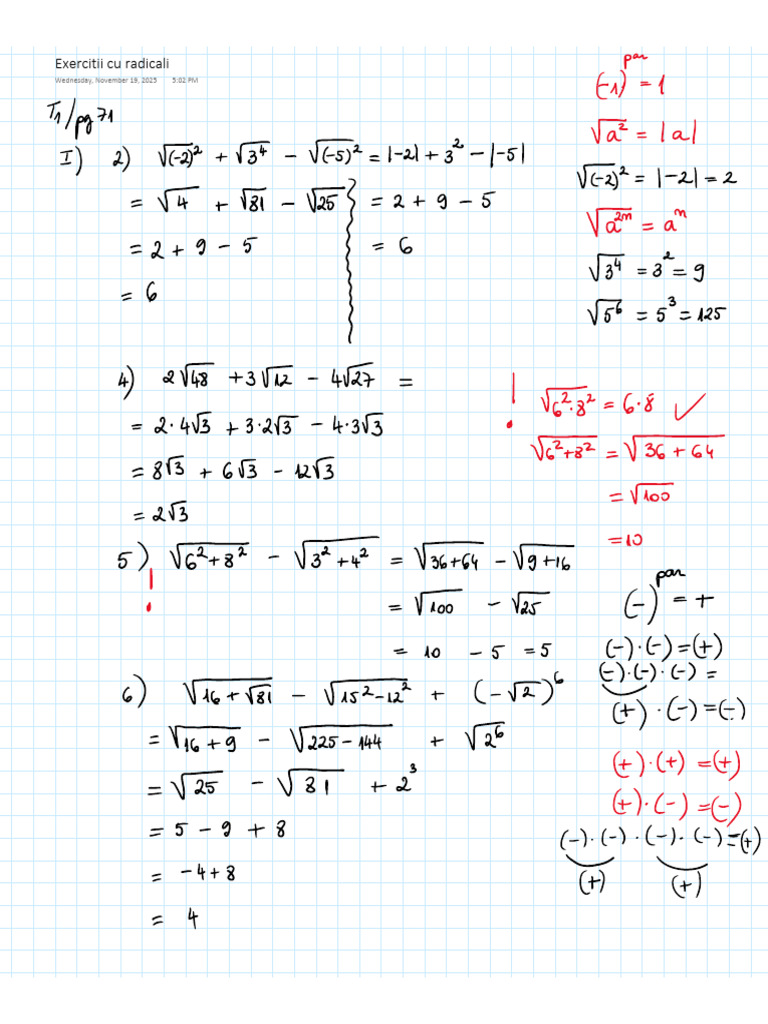 Exercitii cu radicali
Wednesday, November 19, 2025 5:02 PM
T₁/pg 71
I) 2) √(-2)² + √3⁴ - √(-5)² = |-2| + 3² - |-5|
= √4 + √81 - √25 = 2 + 9 - 5
= 2 + 9 - 5 = 6
= 6
(-1)^par = 1
√a² = |a|
√(-2)² = |-2| = 2
√a²ⁿ = aⁿ
√3⁴ = 3² = 9
√5⁶ = 5³ = 125
4) 2√48 + 3√12 - 4√27 =
= 2·4√3 + 3·2√3 - 4·3√3
= 8√3 + 6√3 - 12√3
= 2√3
! √6²·8² = 6·8 ✓
√6²+8² = √36+64
= √100
= 10
5) √6²+8² - √3²+4² = √36+64 - √9+16
! = √100 - √25
= 10 - 5 = 5
(-)^par = +
(-)·(-) = (+)
(-)·(-)·(-) =
(+)·(-) = (-)
(+)·(+) = (+)
(+)·(-) = (-)
(-)·(-)·(-)·(-) = (+)
(+) (+)
6) √16+√81 - √15²-12² + (-√2)⁶
= √16+9 - √225-144 + √2⁶
= √25 - √81 + 2³
= 5 - 9 + 8
= -4+8
= 4